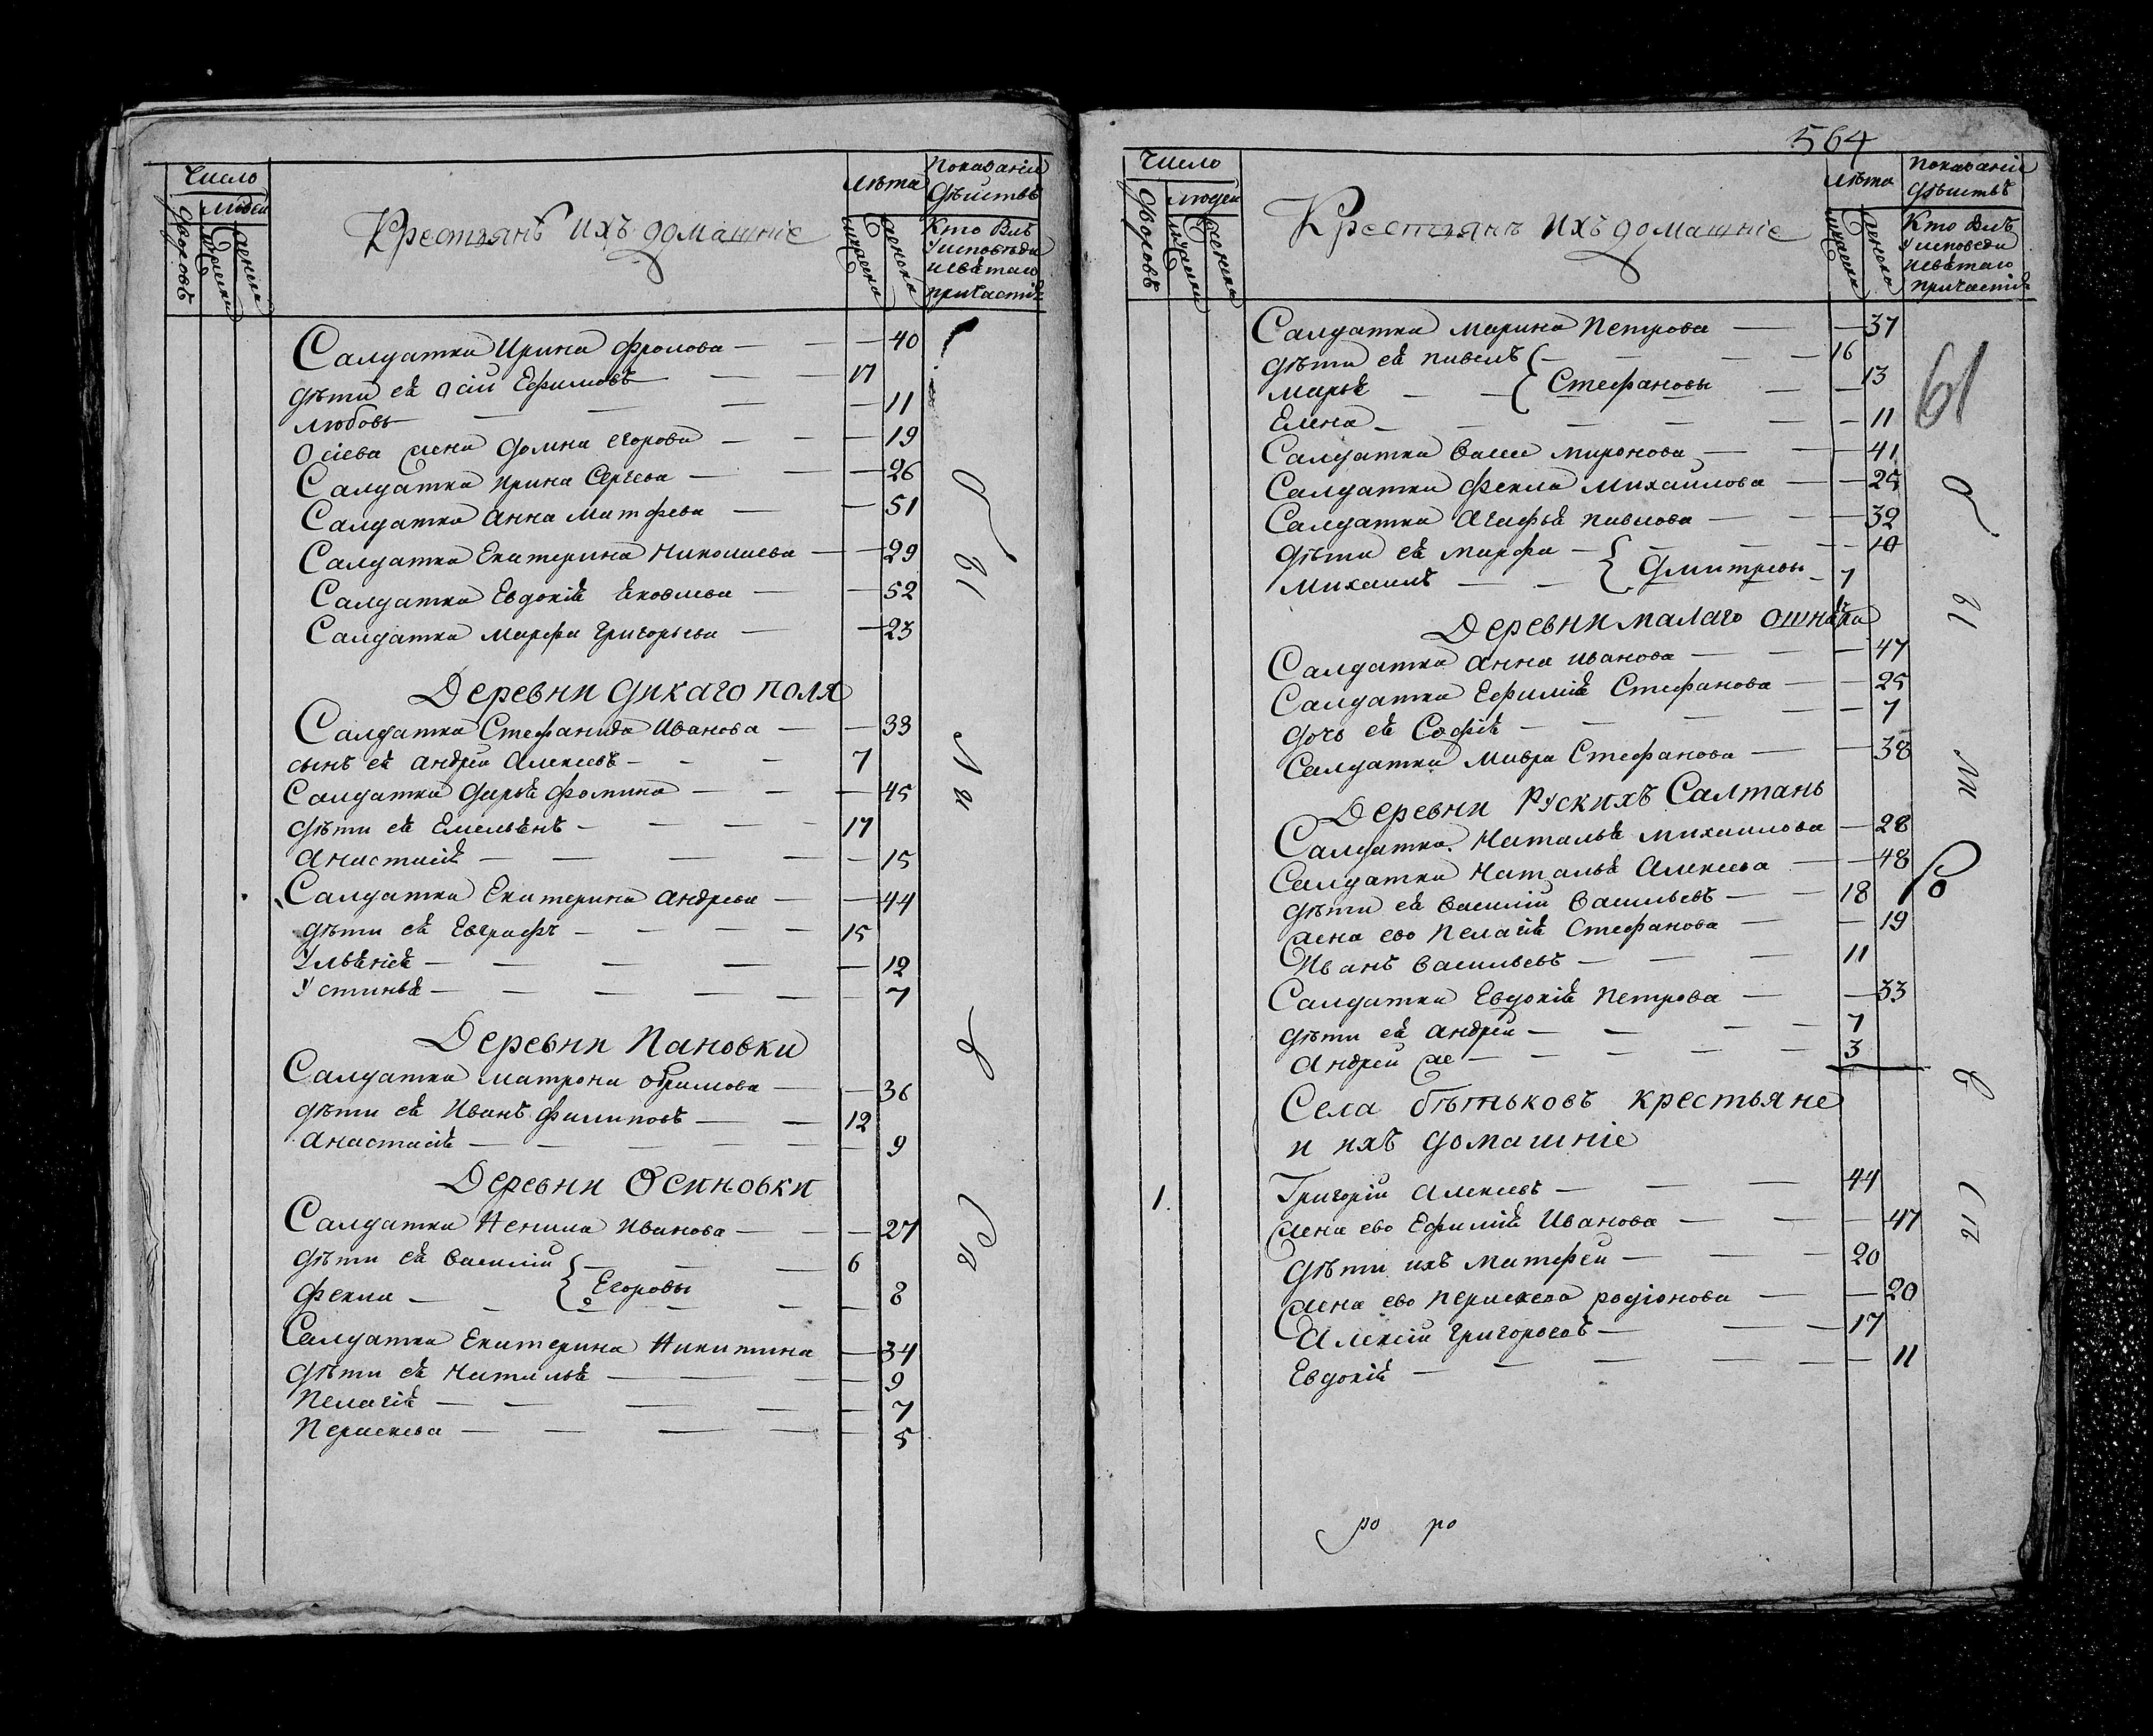 Число
Людей
дворовъ
мужеска
женска
Крестьянъ ихъ домашніе
Лѣта
мужеска
женска
Показаніи
дѣиствъ
Кто былъ
Уисповѣди
исвѣтаго
причастіѣ
Салдатка Ирина Фролова — — — 40
дѣти еѣ Осіи Ефимовъ — — 17
Любовь — — — — 11
Осіева жена Домна Егорова — — — 19
Салдатка Ирина Сергѣева — — — 26
Салдатка Анна Матфеева — — 51
Салдатка Екатерина Николаева — — 29
Салдатка Евдокіѣ Ековлева — — 52
Салдатка Марфа Григорьева — — 23
Деревни Дикаго поля
Салдатка Стефанида Иванова — — 33
сынъ еѣ Андреи Алексеевъ — — — 7
Салдатка Дарьѣ Фомина — — — 45
дѣти еѣ Емельѣнъ — — — — 17
Анастасіѣ — — — — — 15
Салдатка Екатерина Андреева — — 44
дѣти еѣ Евграфъ — — — — 15
Ульѣніѣ — — — — — 12
Устиньѣ — — — — — — 7
Деревни Пановки
Салдатка Матрона Абрамова — — 36
дѣти еѣ Иванъ Филиповъ — — 12
Анастасіѣ — — — — — 9
Деревни Осиновки
Салдатка Ненила Иванова — — 27
дѣти еѣ Василіи — — — 6
Егоровы
Фекла — — — — — 8
Салдатка Екатерина Никитина — 34
дѣти еѣ Натальѣ — — — — 9
Пелагіѣ — — — — — 7
Пераскева — — — — — 5
564
Число
Людей
дворовъ
мужеска
женска
Крестьянъ ихъ домашніе
Лѣта
мужеска
женска
Показаніе
дѣиствъ
Кто былъ
Уисповеди
исвѣтаго
причастіѣ
61
Салдатка Марина Петрова — — 37
дѣти еѣ Павелъ — — — — 16
Марьѣ — — Стефановы — — 13
Елена — — — — — — 11
Салдатка Васса Миронова — — — 41
Салдатка Фекла Михаилова — — 25
Салдатка Агафьѣ Павлова — — — 32
дѣти еѣ Марфа — — — — — 10
Михаилъ — — Дмитревы — 7
Деревни малаго ошнѣка
Салдатка Анна Иванова — — — 47
Салдатка Ефиміѣ Стефанова — — 25
дочь еѣ Софіѣ — — — — — 7
Салдатка Мавра Стефанова — — 38
Деревни Рускихъ Салтанъ
Салдатка Натальѣ Михаилова — 28
Салдатка Натальѣ Алексеева — — 48
дѣти еѣ Василіи Васильевъ — — 18
жена ево Пелагіѣ Стефанова — — 19
Иванъ Васильевъ — — — 11
Салдатка Евдокіѣ Петрова — — 33
дѣти еѣ Андреи — — — — 7
Андреи же — — — — — 3
Села крестьяне
и ихъ домашніе
1. Григоріи Алексеевъ — — — 44
жена ево Ефиміѣ Иванова — — — 47
дѣти ихъ Матфеи — — — 20
жена ево Пераскева Родіонова — — 20
Алексіи Григорьевъ — — — 17
Евдокіѣ — — — — — — 11
ро ро